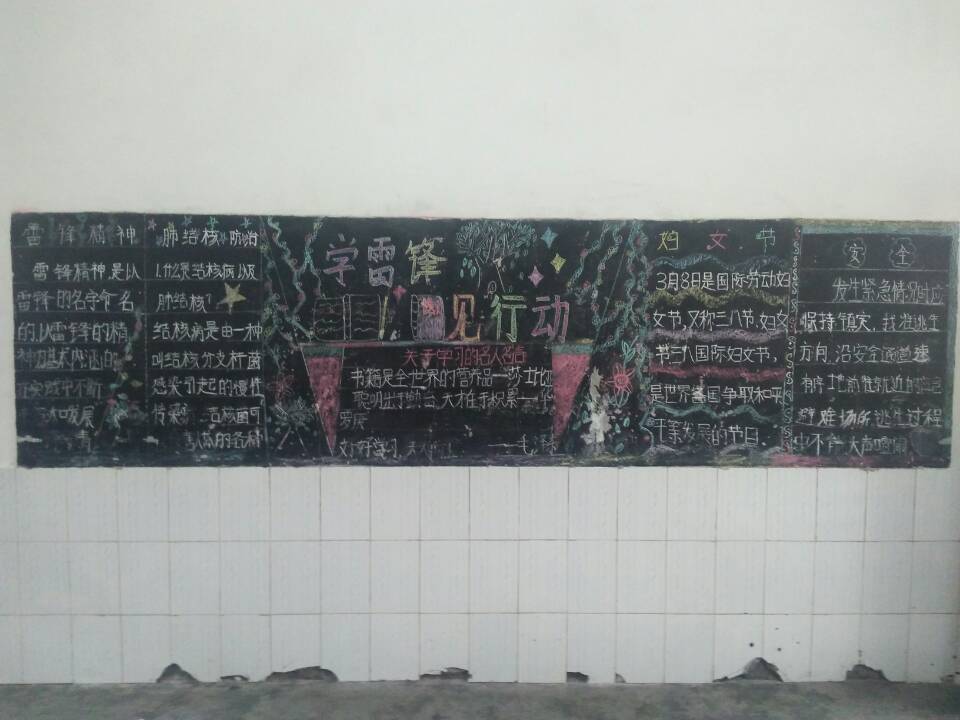 雷锋精神
雷锋精神是以
雷锋的名字命名
的,以雷锋的精
神为基本内涵的
在实践中不断
发展
肺结核防治
1.什么是结核病以及
肺结核?
结核病是由一种
叫结核分支杆菌
感染引起的慢性
传染
学雷锋
见行动
关于学习的名人名言
书籍是全世界的营养品—莎士比亚
聪明出于勤奋,天才在于积累—华
罗庚
好好学习 天天向上 —毛泽
妇女节
3月8日是国际劳动妇
女节,又称三八节,妇女
节三八国际妇女节,
是世界各国争取和平
发展的节日.
安全
发生紧急情况时应
保持镇定,找准逃生
方向,沿安全通道
地前往就近的应急
避难场所逃生过程
中不合大声喧闹